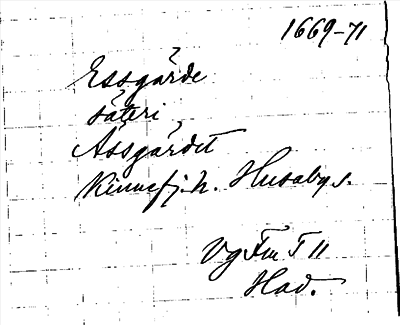 1669-71
Essgärde
säteri
Åssgärdet
Kinnefj. h. Husaby s.
Vg Fm T 11
Had.